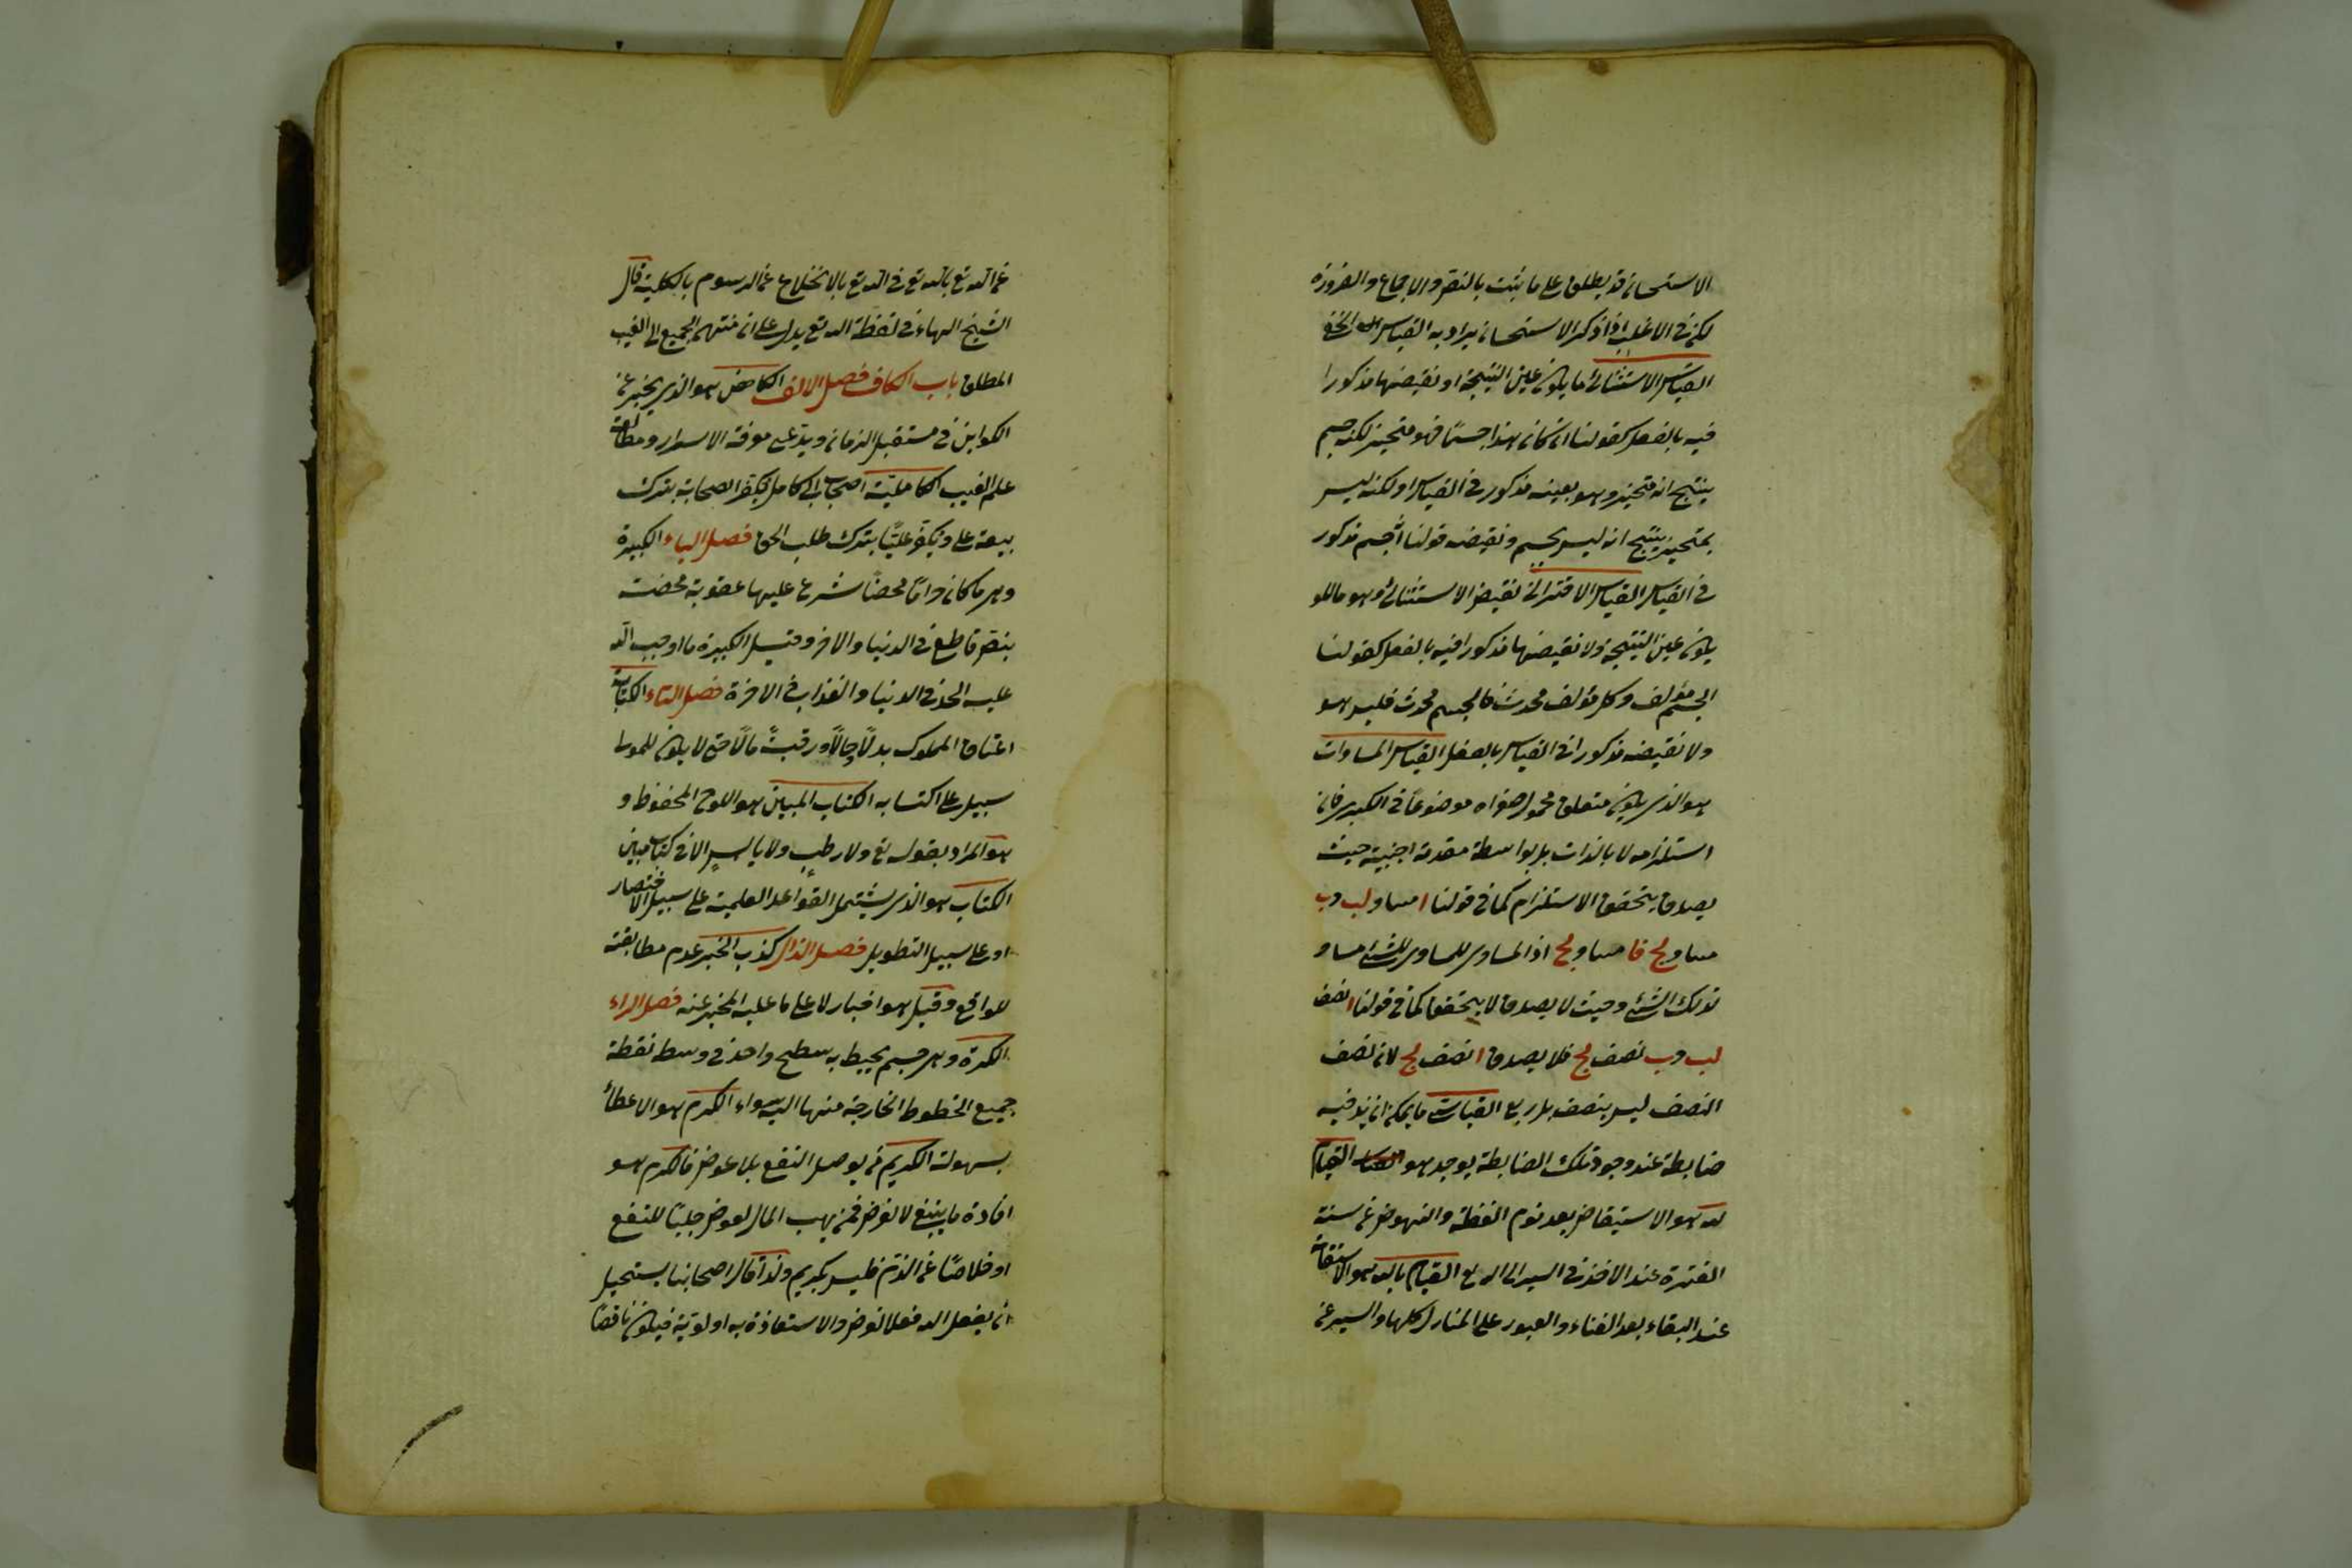 الاستحسان قد يطلق على ما يثبت بالنص والاجماع والضرورة
لكن في الاغلب اذا ذكر الاستحسان يراد به القياس الخفي
القياس الاستثنائي ما يكون عين النتيجة او نقيضها مذكورا
فيه بالفعل كقولنا ان كان هذا جسما فهو متحيز لكنه جسم
ينتج انه متحيز وهو بعينه مذكور في القياس او لكنه ليس
بمتحيز ينتج انه ليس بجسم ونقيضه قولنا انه جسم مذكور
في القياس القياس الاقتراني نقيض الاستثنائي وهو ما لا
يكون عين النتيجة ولا نقيضها مذكورا فيه بالفعل كقولنا
الجسم مؤلف وكل مؤلف محدث فالجسم محدث فليس هو
ولا نقيضه مذكورا في القياس بالفعل القياس المساوات
هو الذي يكون متعلق محمول صغراه موضوعا في الكبرى فان
استلزامه لا بالذات بل بواسطة مقدمة اجنبية حيث
يصدق يتحقق الاستلزام كما في قولنا ا مساو لب وب
مساو لج فا مساو لج اذ المساوي للمساوي للشئ مساو
لذلك الشئ وحيث لا يصدق لا يتحقق كما في قولنا ا نصف
لب وب نصف لج فلا يصدق ا نصف لج لان نصف
النصف ليس بنصف بل ربع القياسي ما يمكن ان يذكر فيه
ضابطة عند وجود تلك الضابطة يوجد هو القيام
لله هو الاستيقاض بعد نوم الغفلة والنهوض عن سنة
الفترة عند الاخذ في السير الى الله تع القيام بالله هو الاستقامة
عند البقاء بعد الفناء والعبور على المنازل كلها والسير عن
عن الله تع بالله تع في الله تع بالانخلاع عن الرسوم بالكلية قال
الشيخ الهاء في لفظة الله تع يدل على ان منتهى الجميع الى الغيب
المطلق باب الكاف فصل الالف الكاهن هو الذي يخبر عن
الكواين في مستقبل الزمان ويدعي معرفة الاسرار ومطالعة
علم الغيب الكاملية اصحاب ابي كامل يكفر الصحابة بترك
بيعة علي ويكفر عليا بترك طلب الحق فصل الباء الكبيرة
وهي ما كان حراما محضا شرع عليها عقوبة محضة
بنص قاطع في الدنيا والاخرة وقيل الكبيرة ما اوجب الله
عليه الحد في الدنيا والعذاب في الاخرة فصل التاء الكتابة
اعتاق المملوك بدلا حالا ورقبة مالا حتى لا يكون للمولى
سبيل على اكتسابه الكتاب المبين هو اللوح المحفوظ و
هو المراد بقوله تع ولا رطب ولا يابس الا في كتاب مبين
الكتاب هو الذي يشتمل القواعد العلمية على سبيل الاختصار
او على سبيل التطويل فصل الذال كذب الخبر عدم مطابقته
للواقع وقيل هو اخبار لا على ما عليه المخبر عنه فصل الراء
الكرة وهي جسم يحيط به سطح واحد في وسطه نقطة
جميع الخطوط الخارجة منها اليه سواء الكرم هو الاعطاء
بسهولة الكريم من يوصل النفع بلا عوض فالكرم هو
افادة ما ينبغي لا لغرض فمن يهب المال لعوض جلبا للنفع
او خلاصا عن الذم فليس بكريم ولذا قال اصحابنا يستحيل
ان يفعل الله فعلا لغرض والا استفاد به اولوية فيكون ناقصا